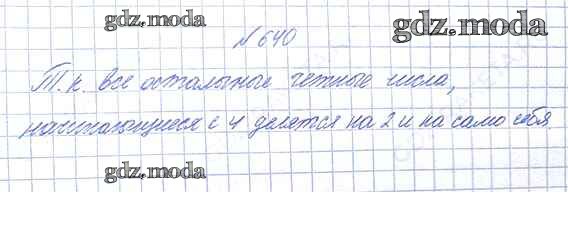 gdz.moda
gdz.moda
№ 640
Т.к. все остальные четные числа,
начинающиеся с 4 делятся на 2 и на само себя.
gdz.moda